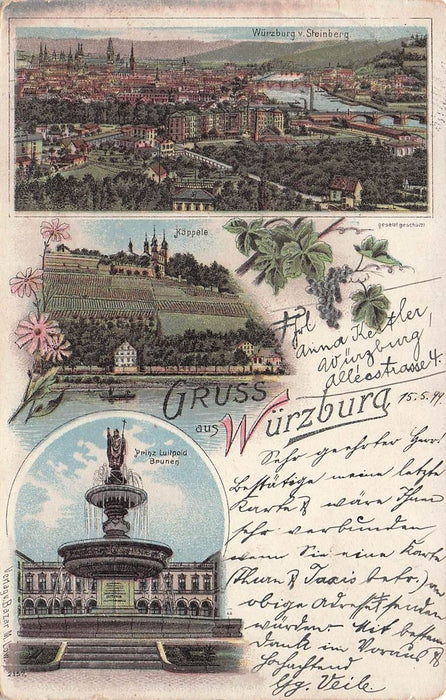 Würzburg v. Steinberg.
Käppele
gesetzl. geschützt
Frl
Anna Kestler,
Würzburg,
Alléestrasse 4.
GRUSS
aus Würzburg
15.5.99
Prinz Luitpold
Brunen
Sehr geehrter Herr.
Bestätige meine letzte
Karte & wäre Ihnen
sehr verbunden,
wenn Sie eine Karte
(Thurn & Taxis betr.) an
obige Adresse senden
würden. Mit bestem
Dank im Voraus &
Hochachtend
Gg. Veile
Verlag: Bazar M.
2357.